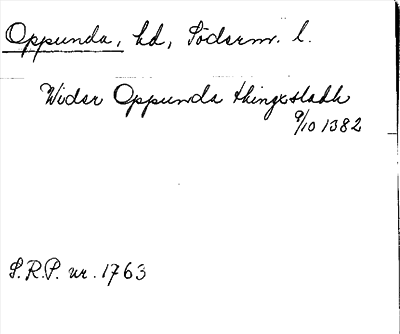 Oppunda, hd, Söderm. l.
Widær Oppunda thingxstadh
9/10 1382
S.R.P. nr. 1763